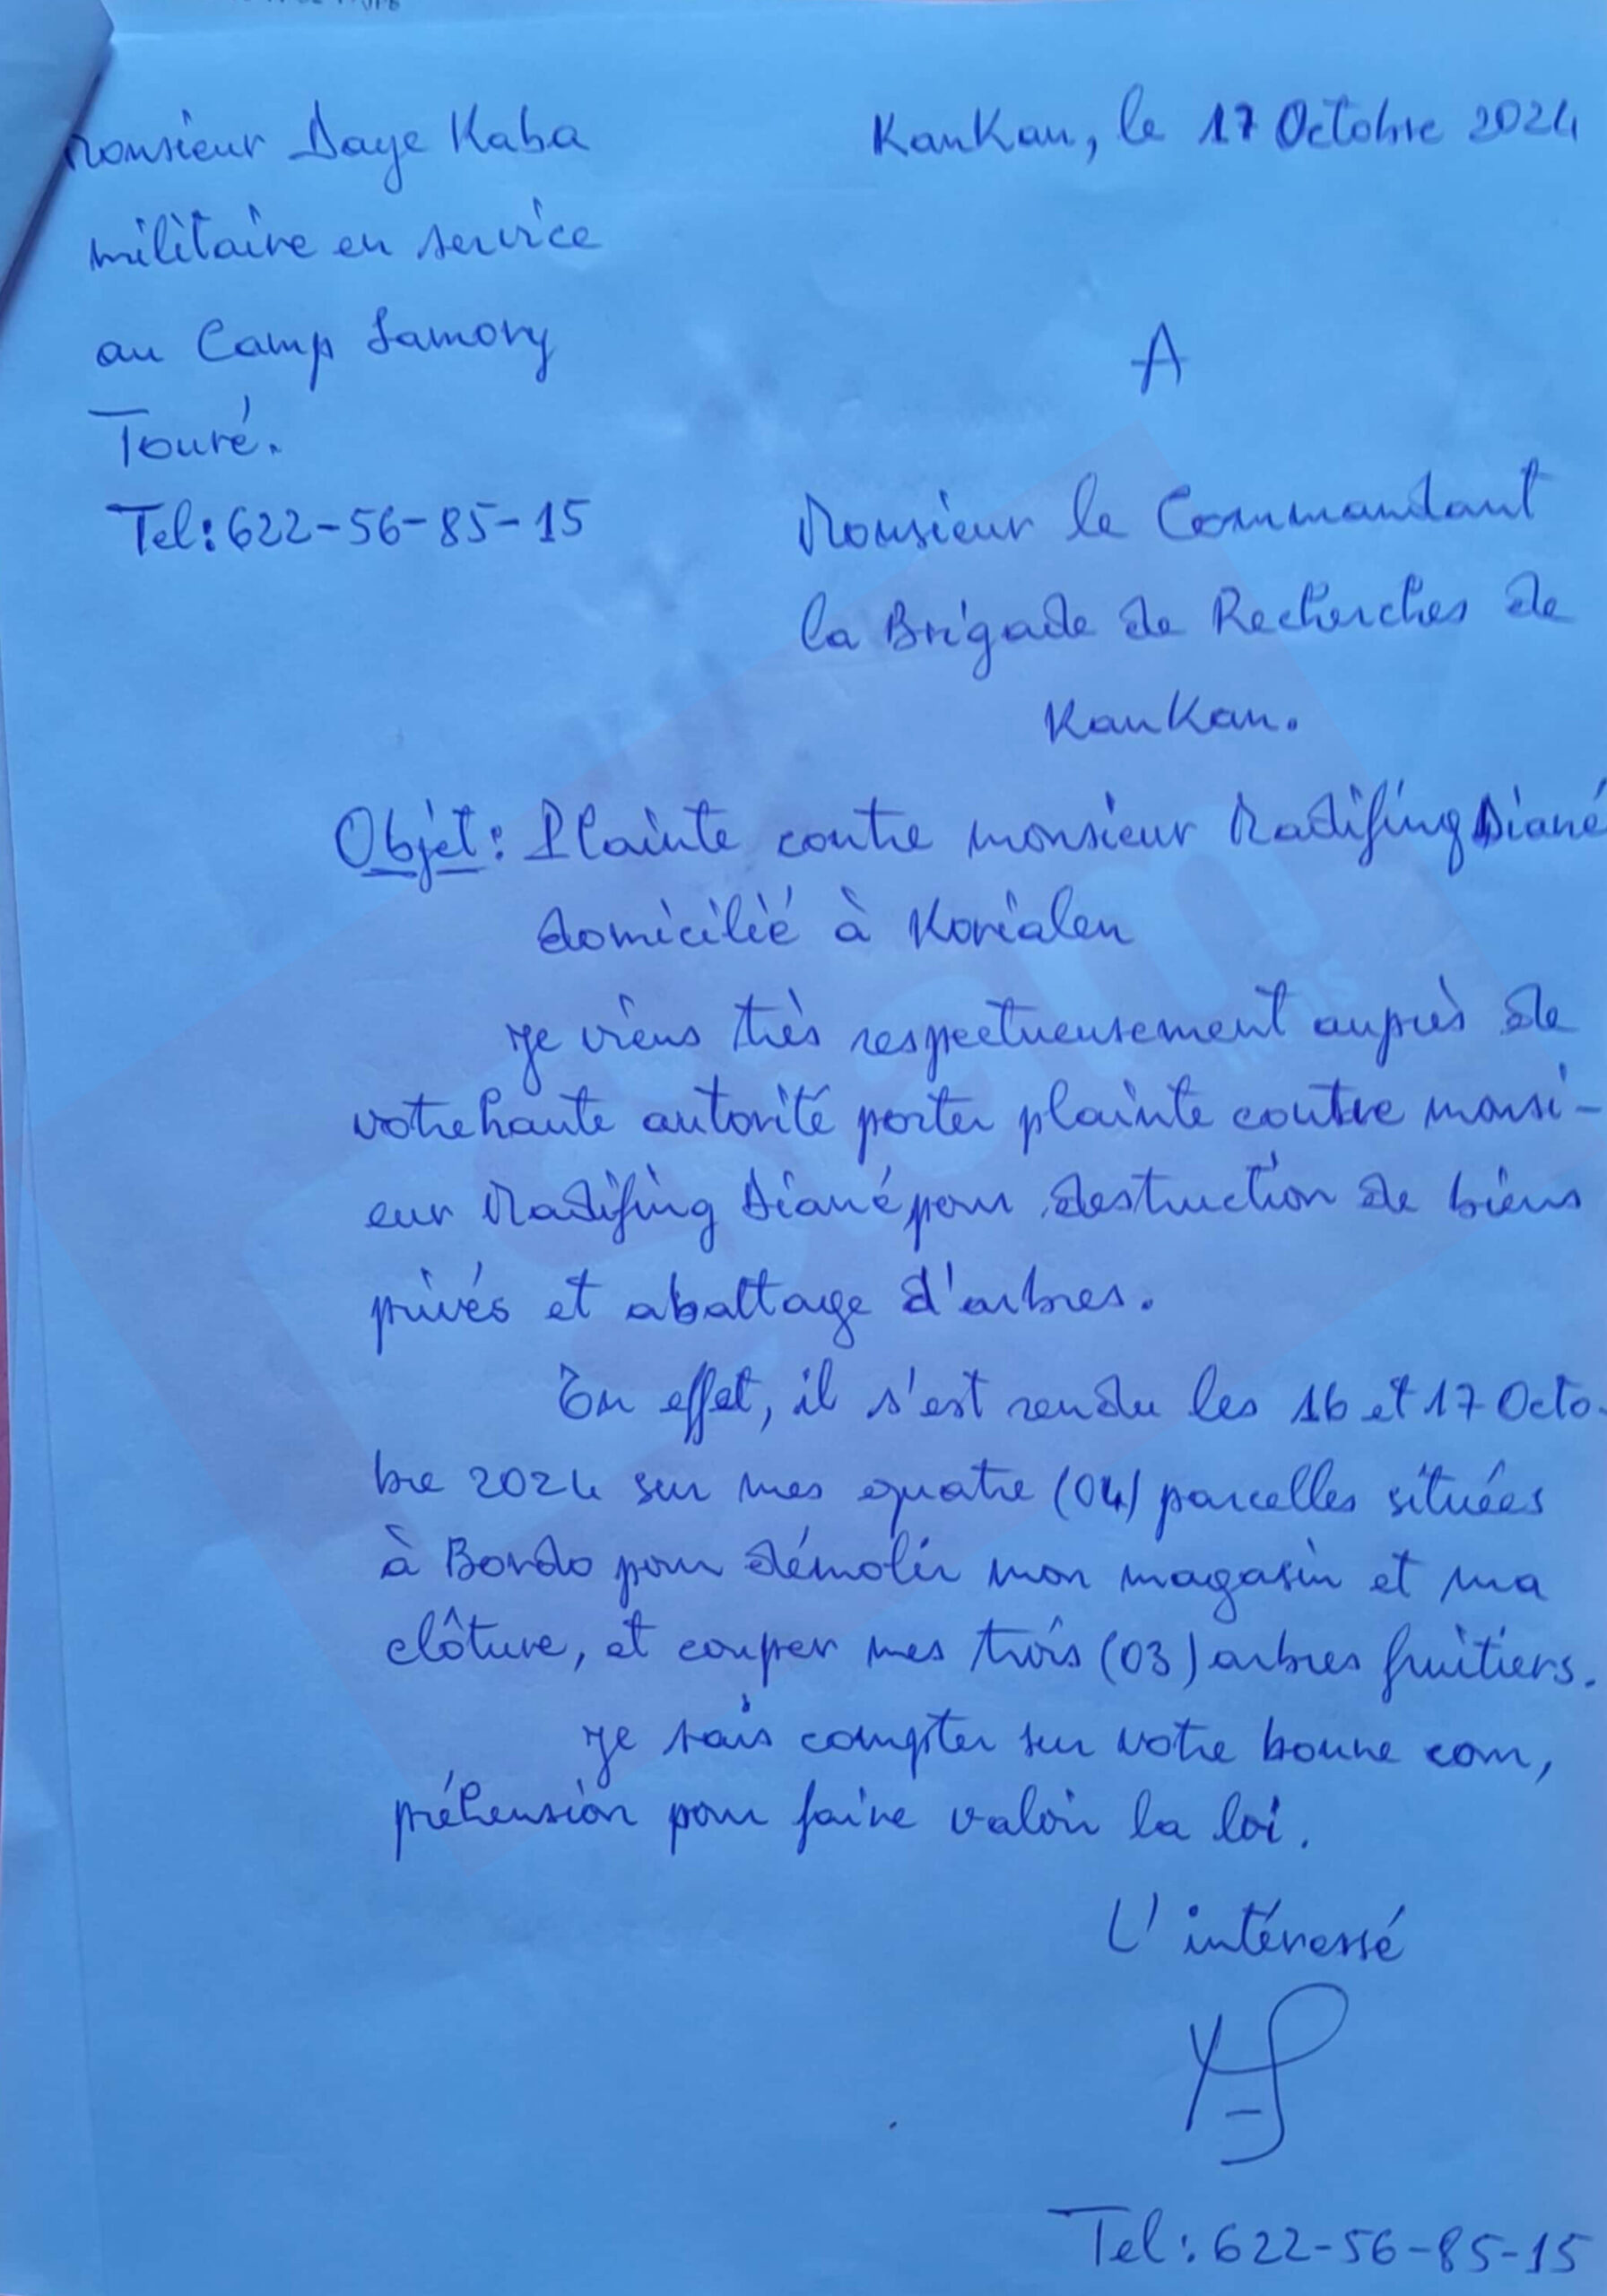 Monsieur Daye Kaba
militaire en service
au Camp Samory
Touré.
Tel: 622-56-85-15
KanKan, le 17 Octobre 2024
A
Monsieur le Commandant
la Brigade de Recherches de
KanKan.
Objet: Plainte contre monsieur Madifing Diané
domicilié à Korialen
Je viens très respectueusement auprès de
votre haute autorité porter plainte contre monsi-
eur Madifing Diané pour destruction de biens
privés et abattage d'arbres.
En effet, il s'est rendu les 16 et 17 Octo-
bre 2024 sur mes quatre (04) parcelles situées
à Bordo pour démolir mon magasin et ma
clôture, et couper mes trois (03) arbres fruitiers.
Je sais compter sur votre bonne com,
préhension pour faire valoir la loi.
L'intéressé
Tel: 622-56-85-15